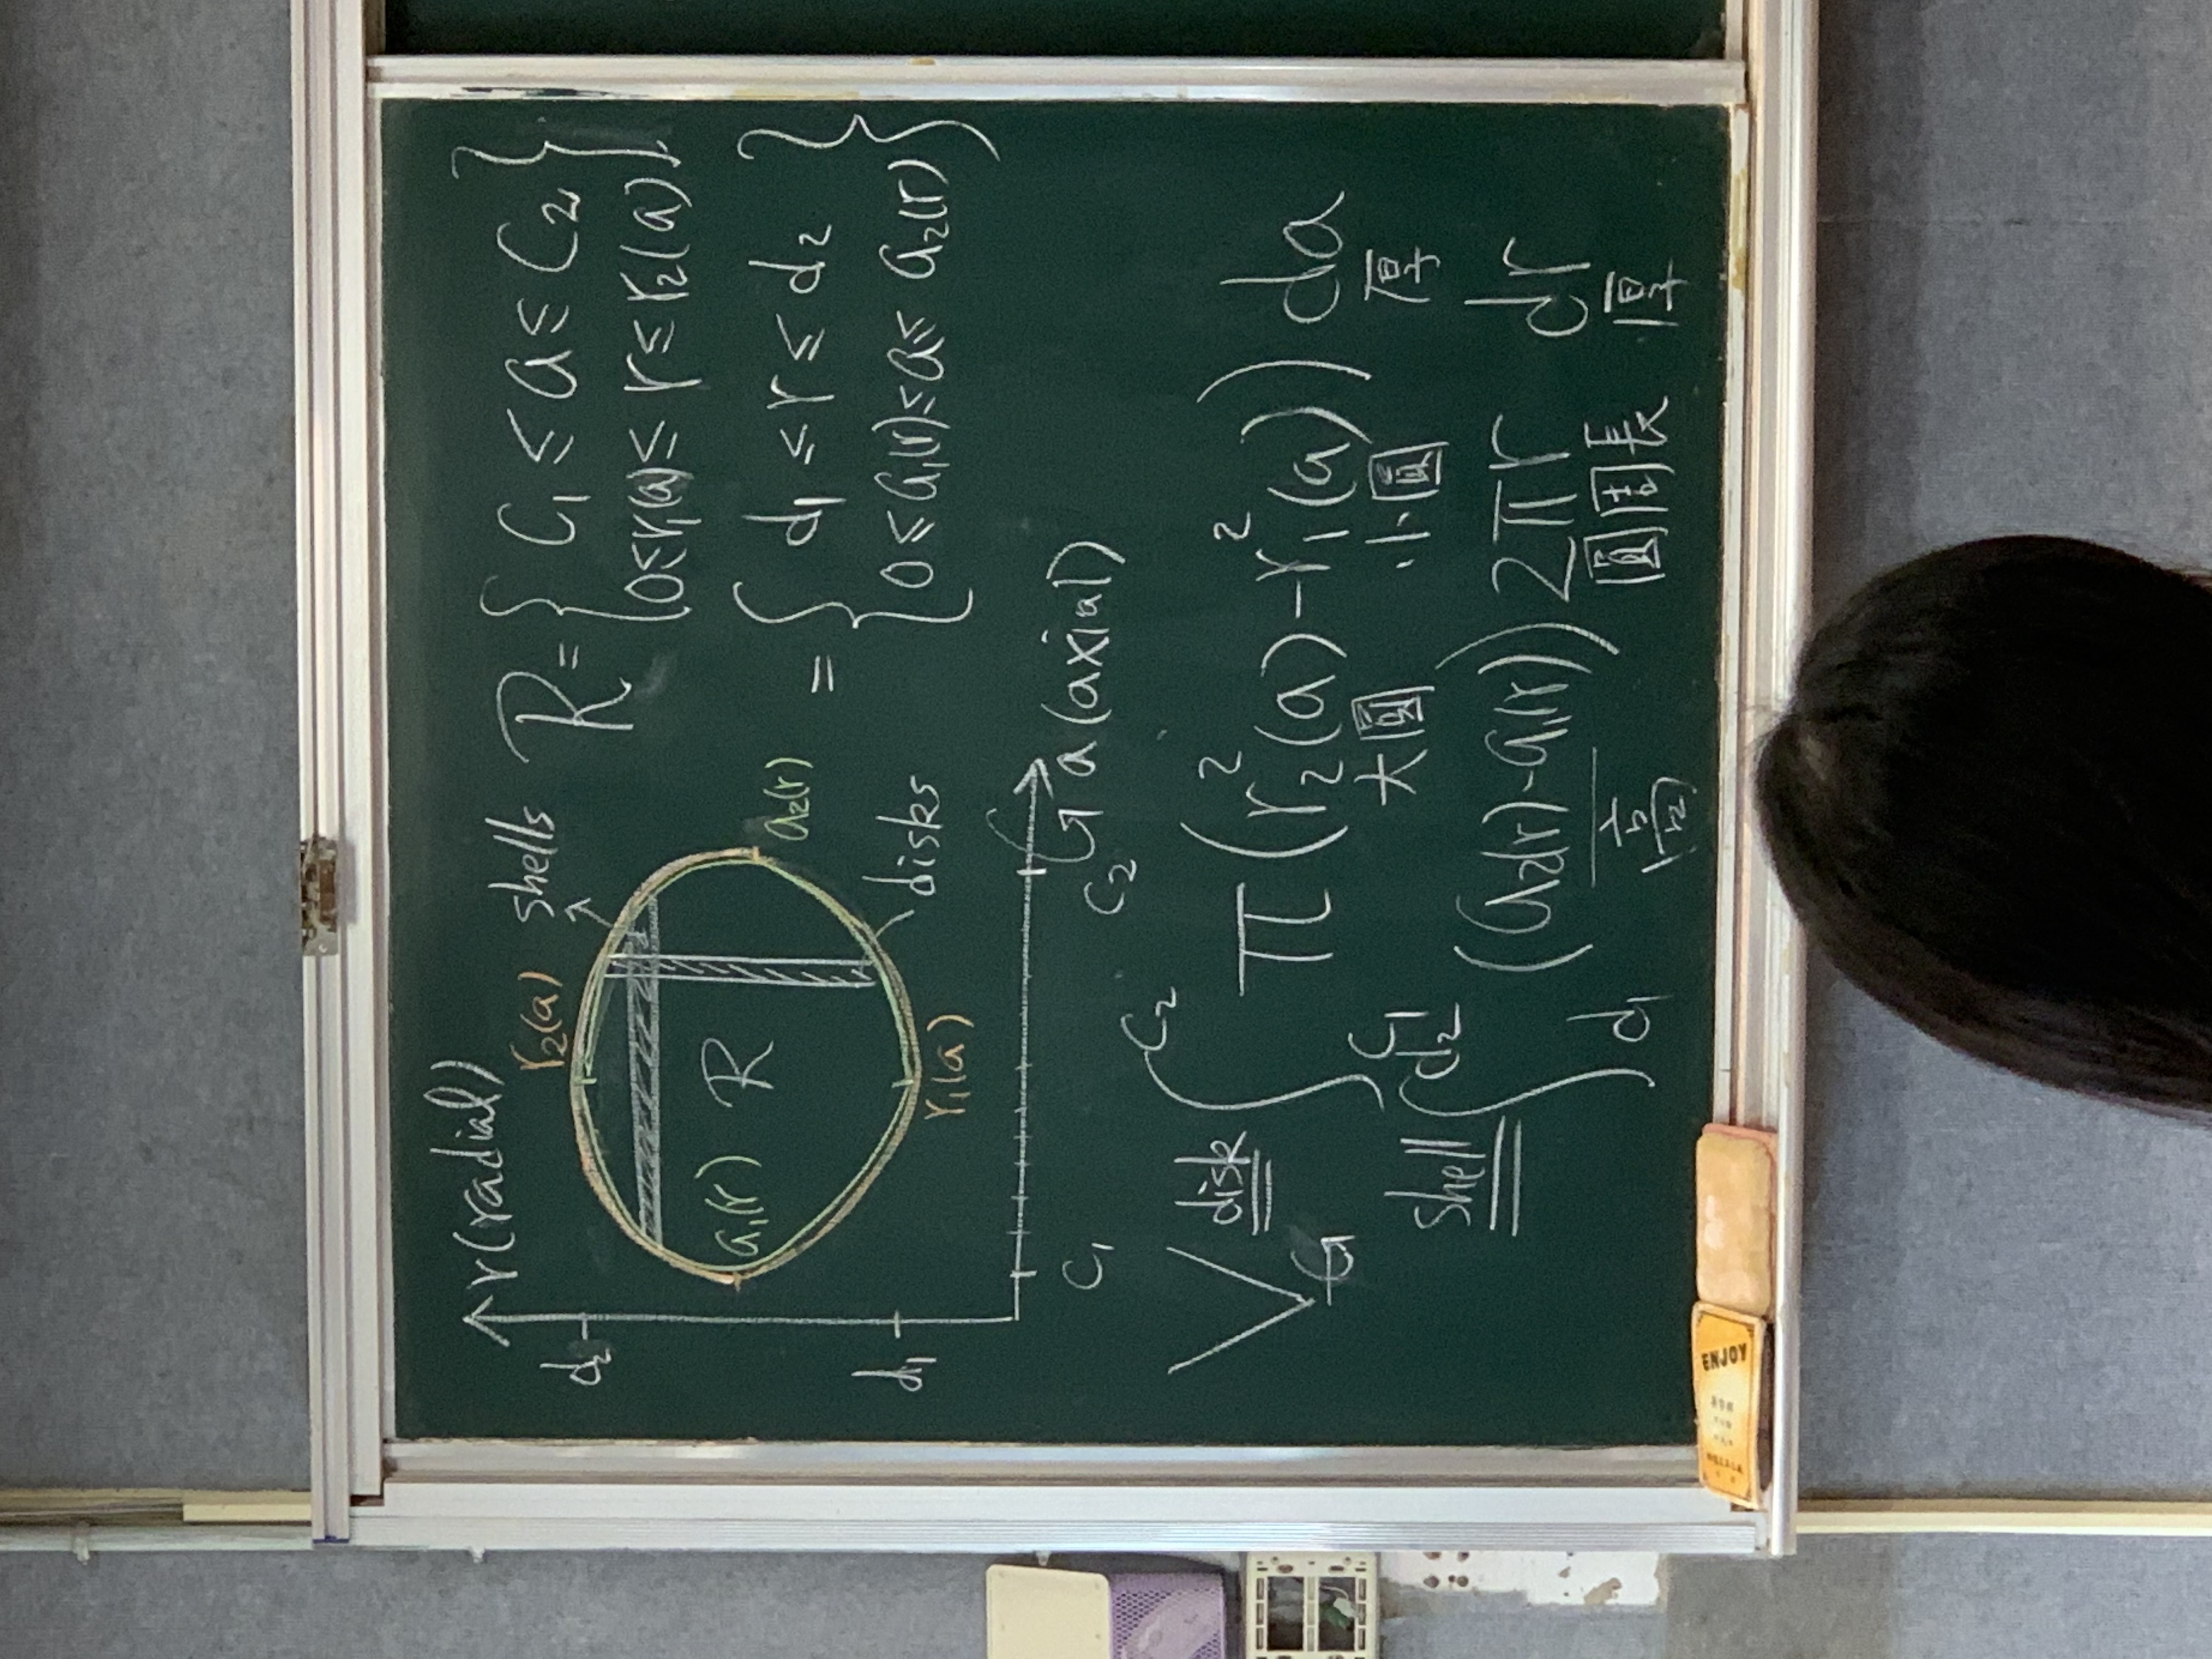 r(radial)
shells
r₂(a)
d₂
R
a₁(r)
a₂(r)
disks
d₁
r₁(a)
C₁
C₂
a(axial)
R = { C₁ ≤ a ≤ C₂
0≤r₁(a) ≤ r ≤ r₂(a) }
= { d₁ ≤ r ≤ d₂
0 ≤ a₁(r) ≤ a ≤ a₂(r) }
V disk ∫ C₂ C₁ π ( r₂²(a) - r₁²(a) ) da
大圓 小圓 厚
shell ∫ d₂ d₁ (a₂(r)-a₁(r)) 2πr dr
高 圓周長 厚
ENJOY